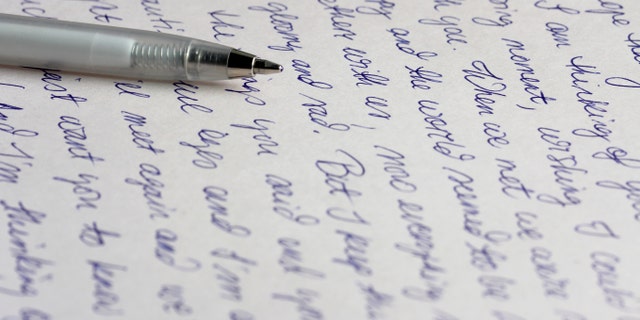 I am thinking of
moment, wishing I could
you. When we met we were
and the world seemed to be
with us, now everything
gloomy and sad. But I keep
the you said and
eyes and I'm
meet again and we
just want you to know
And I'm thinking